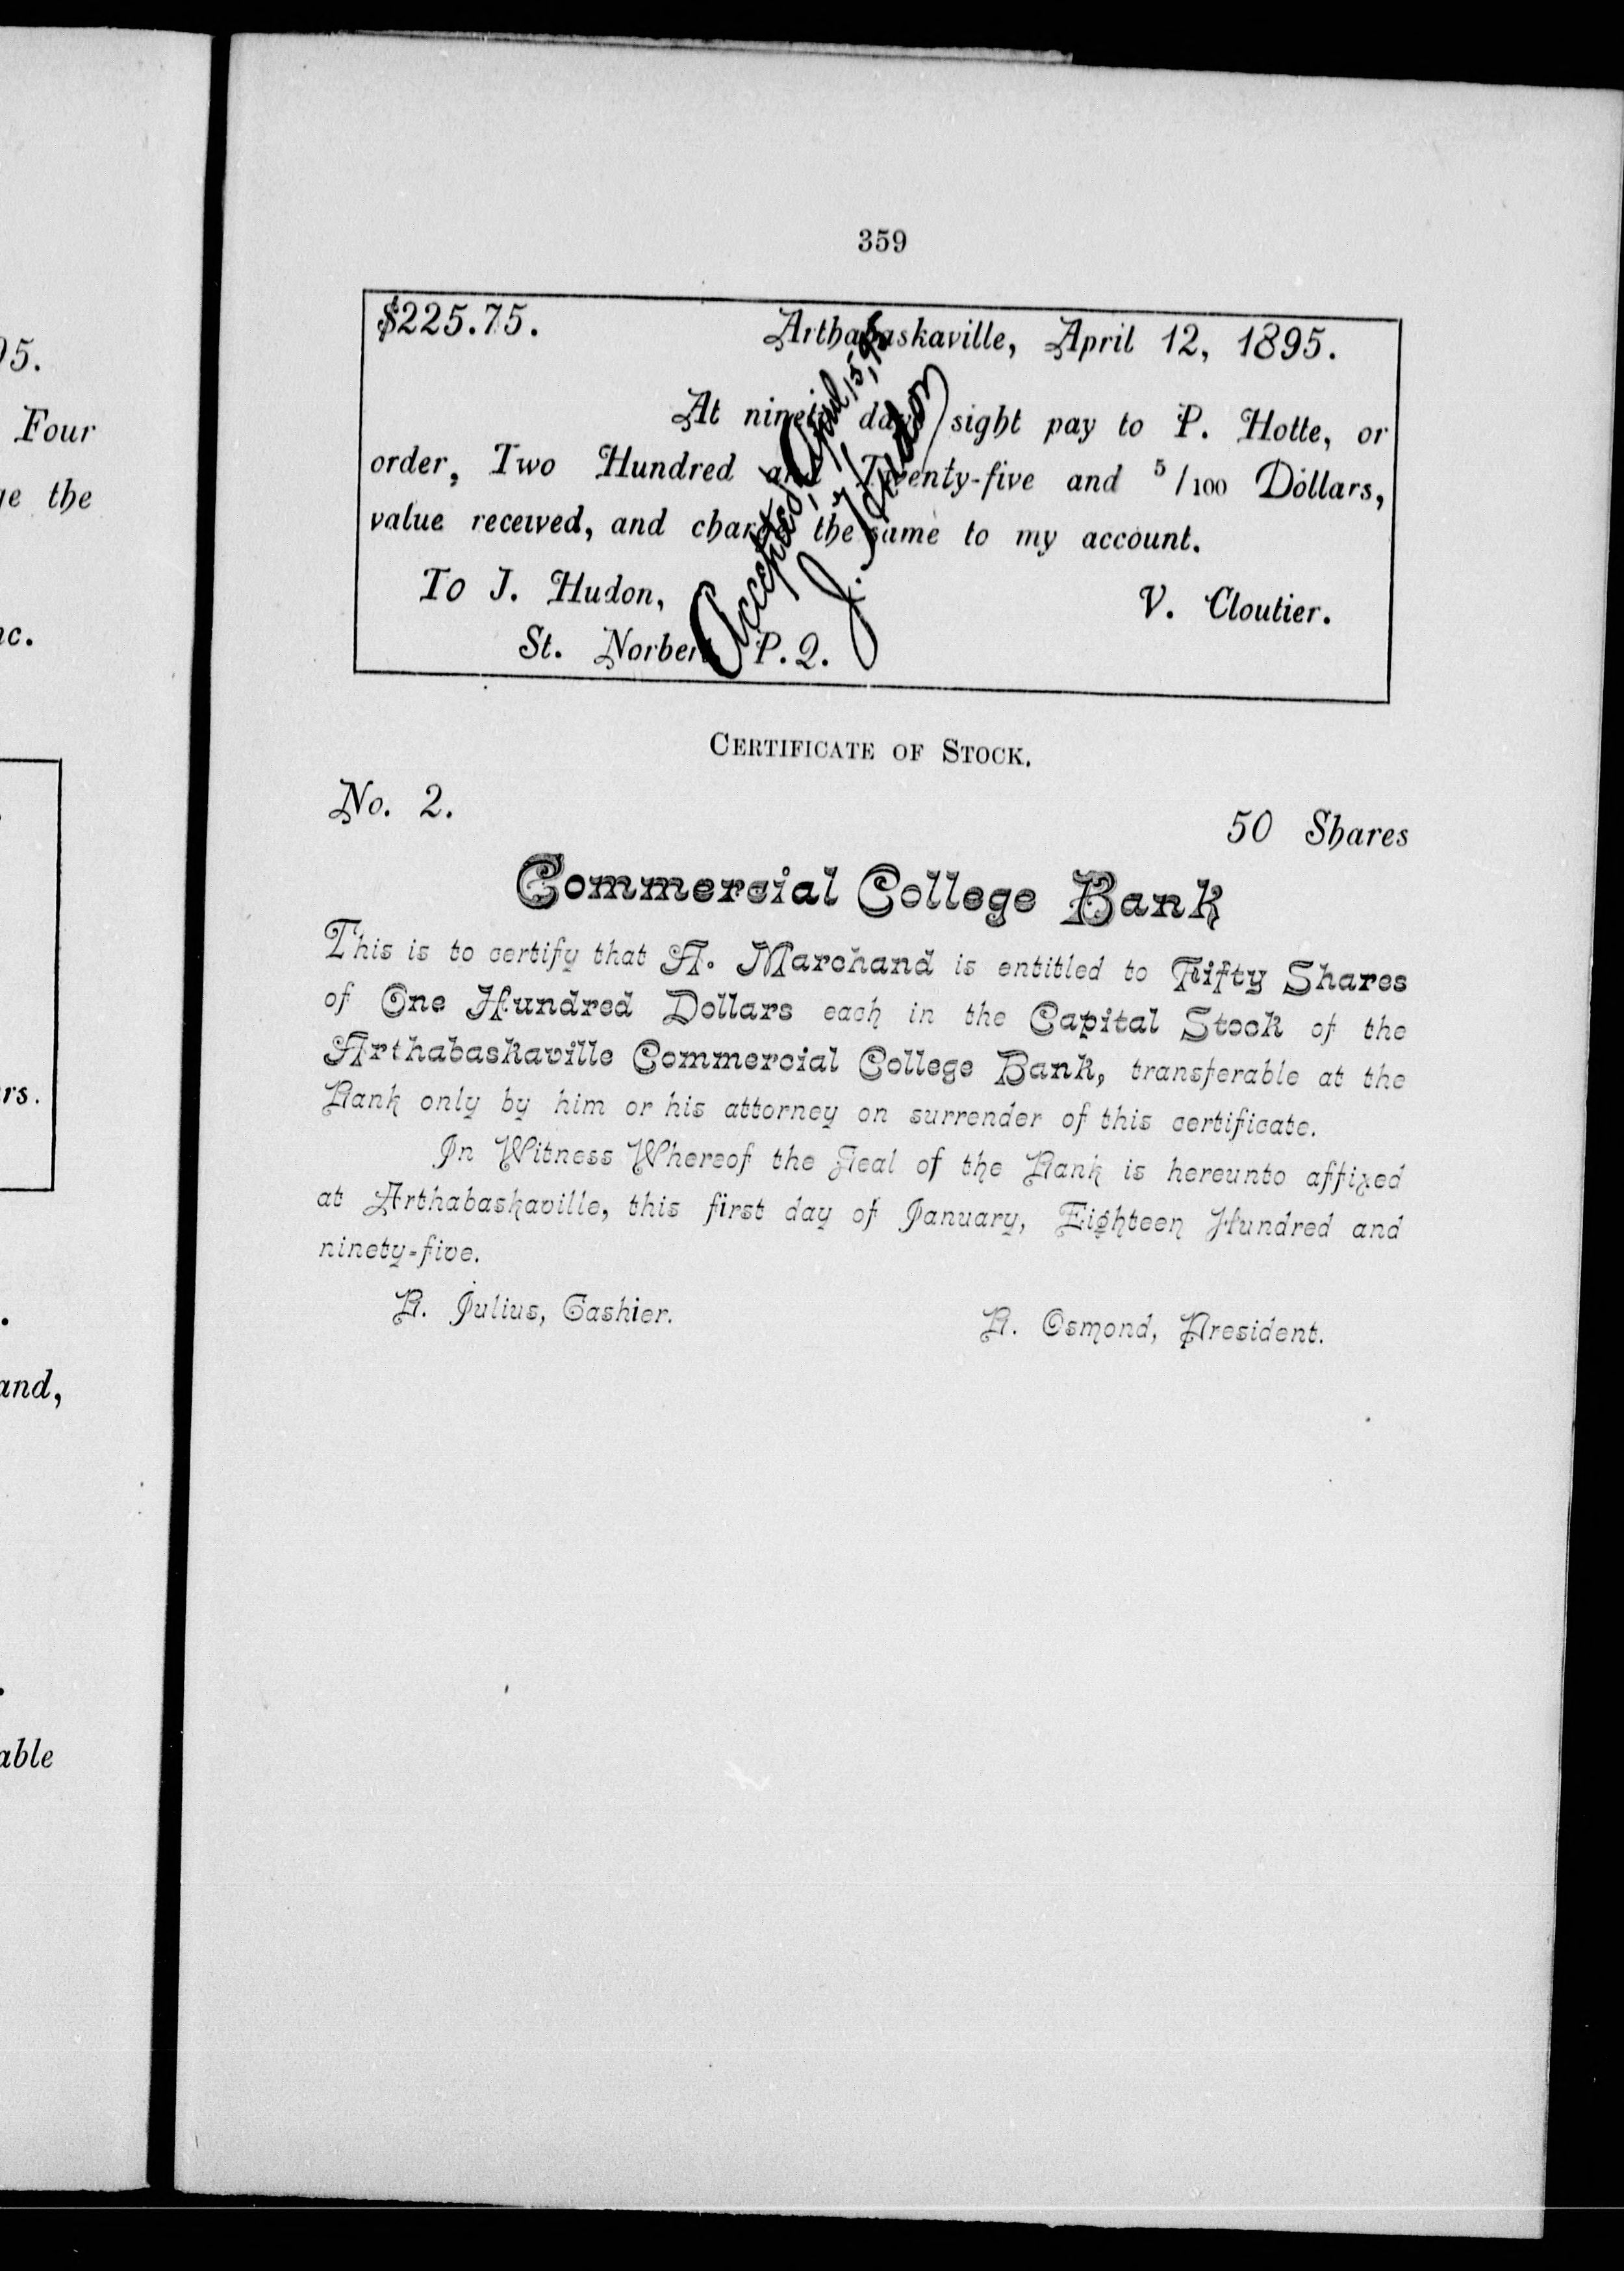 359
$225.75. Arthabaskaville, April 12, 1895.
At ninety days sight pay to P. Hotte, or
order, Two Hundred and Twenty-five and 5/100 Dollars,
value received, and charge the same to my account.
To J. Hudon,
V. Cloutier.
St. Norbert P. Q.
Accepted, April 15, 95
J. Hudon
CERTIFICATE OF STOCK.
No. 2.
50 Shares
Commercial College Bank
This is to certify that A. Marchand is entitled to Fifty Shares
of One Hundred Dollars each in the Capital Stock of the
Arthabaskaville Commercial College Bank, transferable at the
Bank only by him or his attorney on surrender of this certificate.
In Witness Whereof the Seal of the Bank is hereunto affixed
at Arthabaskaville, this first day of January, Eighteen Hundred and
ninety-five.
R. Julius, Cashier.
R. Osmond, President.
95.
Four
ge the
nc.
rs.
and,
able